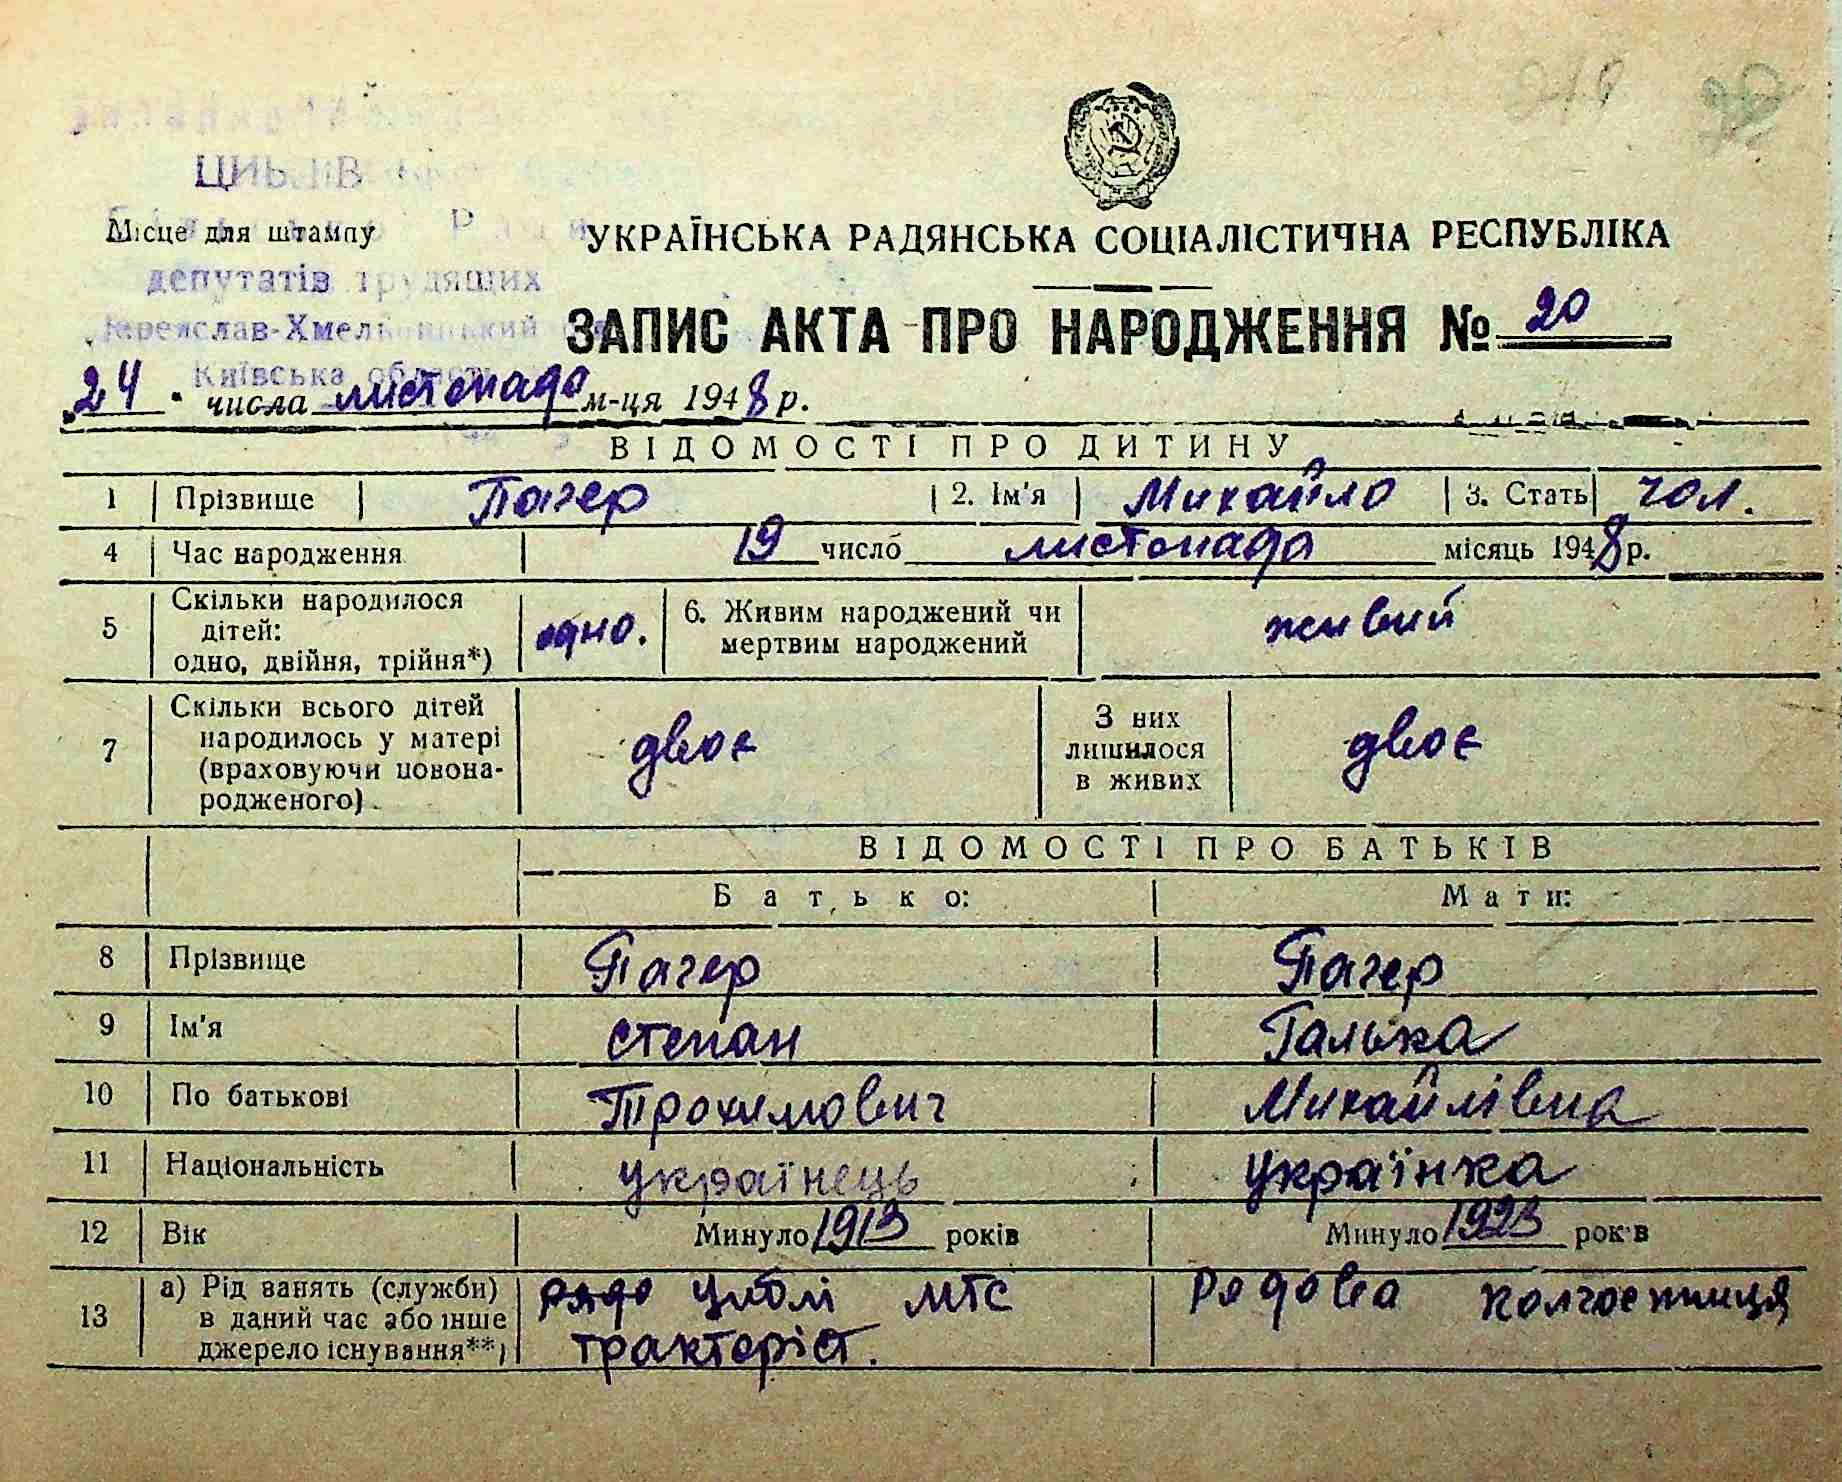 депутатів трудящих
Київська область
Місце для штампу
УКРАЇНСЬКА РАДЯНСЬКА СОЦІАЛІСТИЧНА РЕСПУБЛІКА
ЗАПИС АКТА ПРО НАРОДЖЕННЯ № 20
24 числа листопада м-ця 1948 р.
ВІДОМОСТІ ПРО ДИТИНУ
1 Прізвище Пагер 2. Ім'я Михайло 3. Стать чол.
4 Час народження 19 число листопада місяць 1948 р.
5 Скільки народилося дітей: одно, двійня, трійня*) одно. 6. Живим народжений чи мертвим народжений живий
7 Скільки всього дітей народилось у матері (враховуючи новонародженого) двоє З них лишилося в живих двоє
ВІДОМОСТІ ПРО БАТЬКІВ
Батько: Мати:
8 Прізвище Пагер Пагер
9 Ім'я Степан Галька
10 По батькові Трохимович Михайлівна
11 Національність українець українка
12 Вік Минуло 1913 років Минуло 1923 років
13 а) Рід занять (служби) в даний час або інше джерело існування**) МТС тракторіст. Рядова колгоспниця